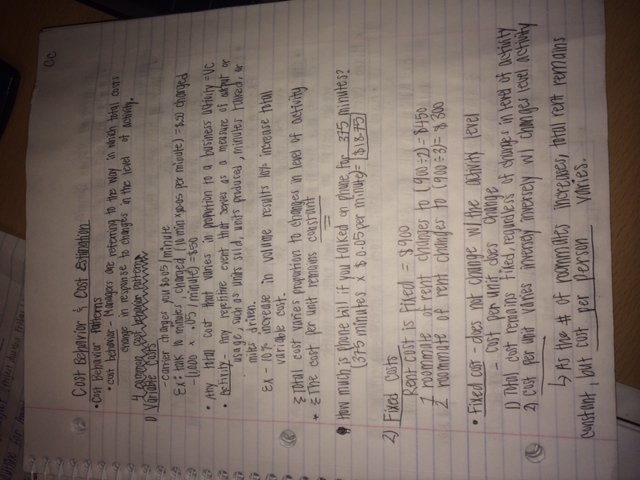 CC
Cost Behavior & Cost Estimation
• Cost Behavior Patterns
• cost behavior - Managers are referring to the way in which total costs
change in response to changes in the level of activity.
4 common cost behavior patterns
1) Variable Costs
- carrier charges you $0.05/minute
Ex: talk 10 minutes, charged (10 min x $0.05 per minute) = $.50 charged
- 1,000 x .05 (minute) = $50
• Any total cost that varies in proportion to a business activity = VC
• Activity: Any repetitive event that serves as a measure of output or
usage, such as units sold, units produced, minutes talked, or
miles driven.
Ex - 10% increase in volume results 10% increase total
variable cost.
Total cost varies proportion to changes in level of activity
* The cost per unit remains constant
How much is phone bill if you talked on phone for 375 minutes?
(375 minutes x $0.05 per minute) = $18.75
2) Fixed Costs
Rent cost is fixed = $900
1 roommate of rent changes to (900÷2) = $450
2 roommate of rent changes to (900÷3) = $300
• Fixed cost - does not change w/ the activity level
- cost per unit does change
1) Total cost remains fixed regardless of changes in level of activity
2) Cost per unit varies inversely w/ changes level activity
↳ As the # of roommates increases, total rent remains
constant, but cost per person varies.